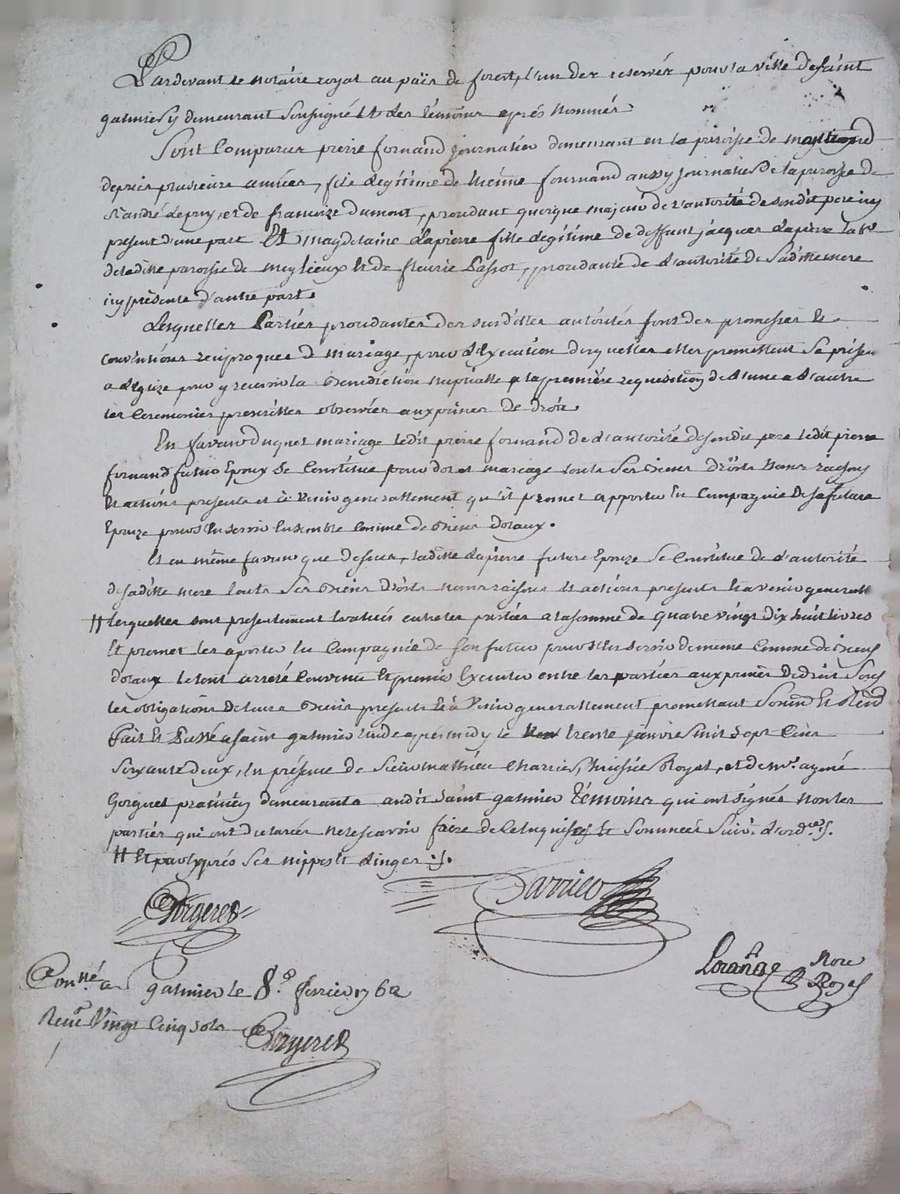 Pardevant le notaire royal au païs de forest, l'un des reservés pour la ville de saint
galmier y demeurant soussigné et des témoins après nommés
Sont comparus pierre fornand journalier demeurant en la paroisse de
depuis plusieurs années, fils légitime de Etienne fournand aussy journalier de la paroisse de
st andré le puy, et de françoize dumont, procedant quoique majeur de l'autorité de sondit pere icy
present d'une part Et magdelaine Lapierre fille légitime de deffunt jacques Lapierre
de ladite paroisse de meylieux et de fleurie Passot, procedante de l'autorité de sadite mere
icy présente d'autre part.
Lesquelles Parties procedantes des susdittes autorités font des promesses et
conventions reciproques de mariage, pour l'Execution desquelles elles promettent se presenter
a l'eglize pour y recevoir la Benediction nuptialle a la premiere requisition de l'une a l'autre
les Ceremonies prescrittes observées aux peines de droit.
En faveur duquel mariage ledit pierre fornand de l'autorité de sondit pere ledit pierre
fornand futur Epoux se Constitue pour dot et mariage touts ses biens droits noms raisons
et actions presents et à Venir generallement qu'il promet apporter en Compagnie de sa future
Epouze pour luy servir Ensemble Comme de biens dotaux.
Et en même faveur que dessus, ladite Lapierre future Epouze se Constitue de l'autorité
de sadite mere touts ses biens droits noms raisons et actions presents et avenir generallt
# lesquelles sont presentement evalués entre les parties a la somme de quatre vingt dix huit livres
Et promet les aporter en Compagnie de son futur pour elles servir de meme Comme de biens
dotaux le tout arreté Convenu Et promis Executer entre les parties aux peines de droit Sous
les obligations de leurs biens presents et à Venir generallement promettant Soumt Et Rend
Fait Et Passé a saint galmier Etude apres midy le trente janvier mil Sept Cent
Soixante deux, En présence de Sieur mathieu Charles, Royet, et de mr. aymé
Gorgeret praticien demeurants audit Saint galmier témoins qui ont signés Non les
parties qui ont declarées ne le scavoir faire de ce Enquises et Sommées Suivt. l'ordce.
# Et par exprés ses nippes et linges :/.
Gorgeret
Nore
Royal
Conllé a St galmier le 8.e fevrier 1762
Reçu Vingt Cinq sols
Gorgeret